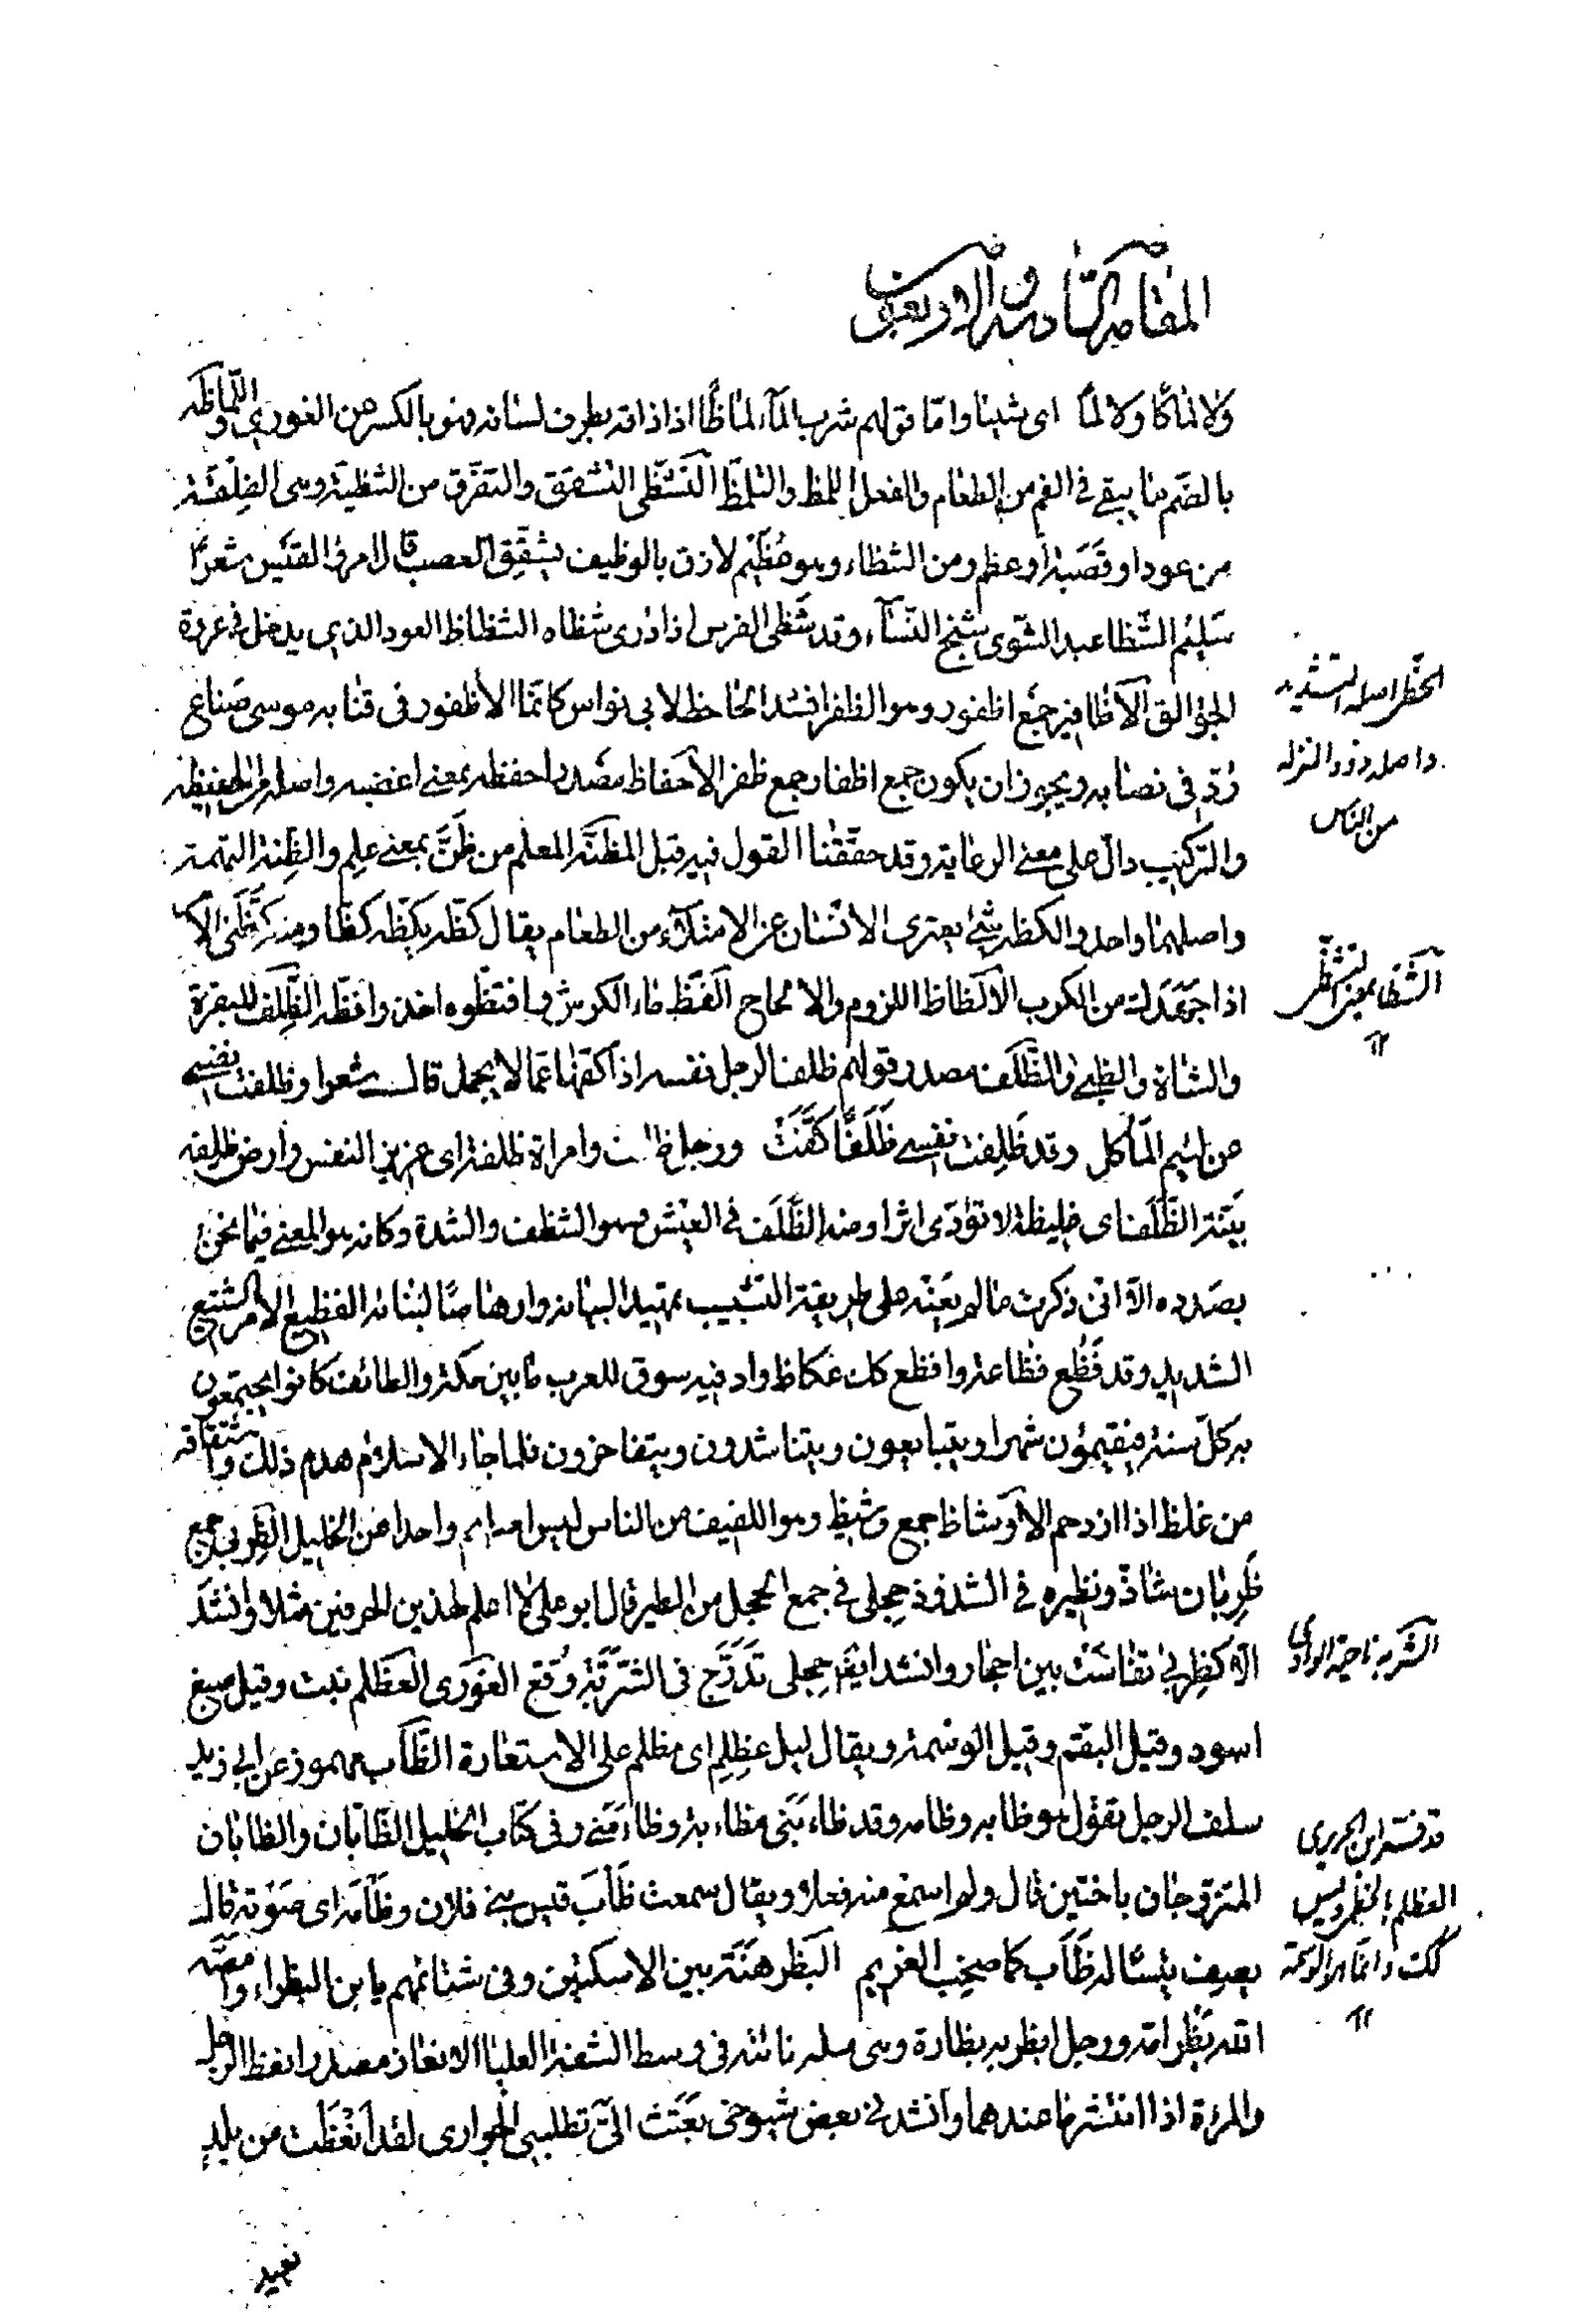 المقامة السادسة والاربعون
ولا لماكا ولا لما اى شيئا واما قولهم شرب المآء لماظا اذا ذاقه بطرف لسانه فهو بالكسر عن الغورى واللماظه
بالضم ما يبقى فى الفم من الطعام والفعل اللمظ والتلمظ التشظى التشقق والتفرق من الشظية وهى الفلقة
من عود او قصبة او عظم ومن الشظاء وهو عظيم لازق بالوظيف يشقق العصب قال امرؤ القيس شعرا
سليم الشظا عبد الشوى شنج النسآء وقد شظى الفرس اذا دوى شظاه الشظاظ العود الذى يدخل فى عروة
الجوالق الأظافير جمع اظفور وهو الظفر انشد الجاحظ لابى نواس كانما الأظفور فى قنابه موسى صناع
رد فى نصابه ويجوز ان يكون جمع اظفار جمع ظفر الاحفاظ مصدر احفظه بمعنى اغضبه واصله من الحفيظه
والتركيب دال على معنى الرعاية وقد حققنا القول فيه قبل المظنة المعلم من ظن بمعنى علم والظنة التهمة
واصلهما واحد والكظة شئ يعترى الانسان عن الامتلاء من الطعام يقال كظه يكظه كظا ومنه كظنى الامر
اذا جهدك من الكرب الالظاظ اللزوم والالحاح الفظ ماء الكرش وافتظوه اخذوا فظه الظلف للبقرة
والشاة والظبى والظلف مصدر قولهم ظلف الرجل نفسه اذا كفها عما لا يجمل قال شعرا وظلفت نفسى
عن لئيم المأكل وقد ظلفت نفسى ظلفا كفت ورجل ظلف وامراة ظلفة اى عزيز النفس وارض ظلفه
بينة الظلف اى غليظة لا تؤدى اثرا ومنه الظلف فى العيش وهو الشظف والشدة وكانه هو المعنى فيما نحن
بصدده الا انى ذكرت ما لم يعنه على طريقة التشبيب تمهيدا لبيانه وارهاصا لبنائه الفظيع الامر الشنيع
الشديد وقد فظع فظاعة وافظع كك عكاظ واد فيه سوق للعرب ما بين مكة والطائف كانوا يجتمعون
به كل سنة فيقيمون شهرا ويتبايعون ويتناشدون ويتفاخرون فلما جاء الاسلام هدم ذلك واشتقاقه
من عكظ اذا ازدحم الاوشاظ جمع وشيظ وهو اللفيف من الناس ليس اصلهم واحدا عن الخليل الظربى جمع
ظربان شاذ ونظيره فى الشذوذ حجلى فى جمع الحجل من الطير قال ابو على لا اعلم لهذين الحرفين مثلا وانشد
الا كظربى تفاست بين احجار وانشد ايضا حجلى تدرج فى الشربة وقع الغورى العظلم نبت وقيل صبغ
اسود وقيل البقم وقيل الوسمة ويقال ليل عظلم اى مظلم على الاستعارة الظأب مهموز عن ابى زيد
سلف الرجل تقول هو ظابه وظامه وقد ظاءبنى مظاءبة وظاءمنى وفى كتاب الخليل الظأبان والظابان
المتزوجان باختين قال ولم اسمع منه فعلا ويقال سمعت ظأب قيس بنى فلان وظأمه اى صوته قال
يصف تيسا له ظأب كما صخب الغريم البظر هنة بين الاسكتين وفى شتائمهم يا ابن البظراء وامصه
الله بظر امه ورجل ابظر به بظارة وهى هنة ناتئة فى وسط الشفة العليا الانعاظ مصدر انعظ الرجل
والمرءة اذا انتشر ما عندهما وانشد لى بعض شيوخى بعثت الى تطلبى الجوارى لقد انعظت من بلد
بعيد
واصله ذوو المنزله
من الناس
الشظا بمعنى التشظى
الشربه ناحية الوادى
قد فسر ابن الحريرى
العظلم بالخطر وليس
كك وانما هو الوسمة